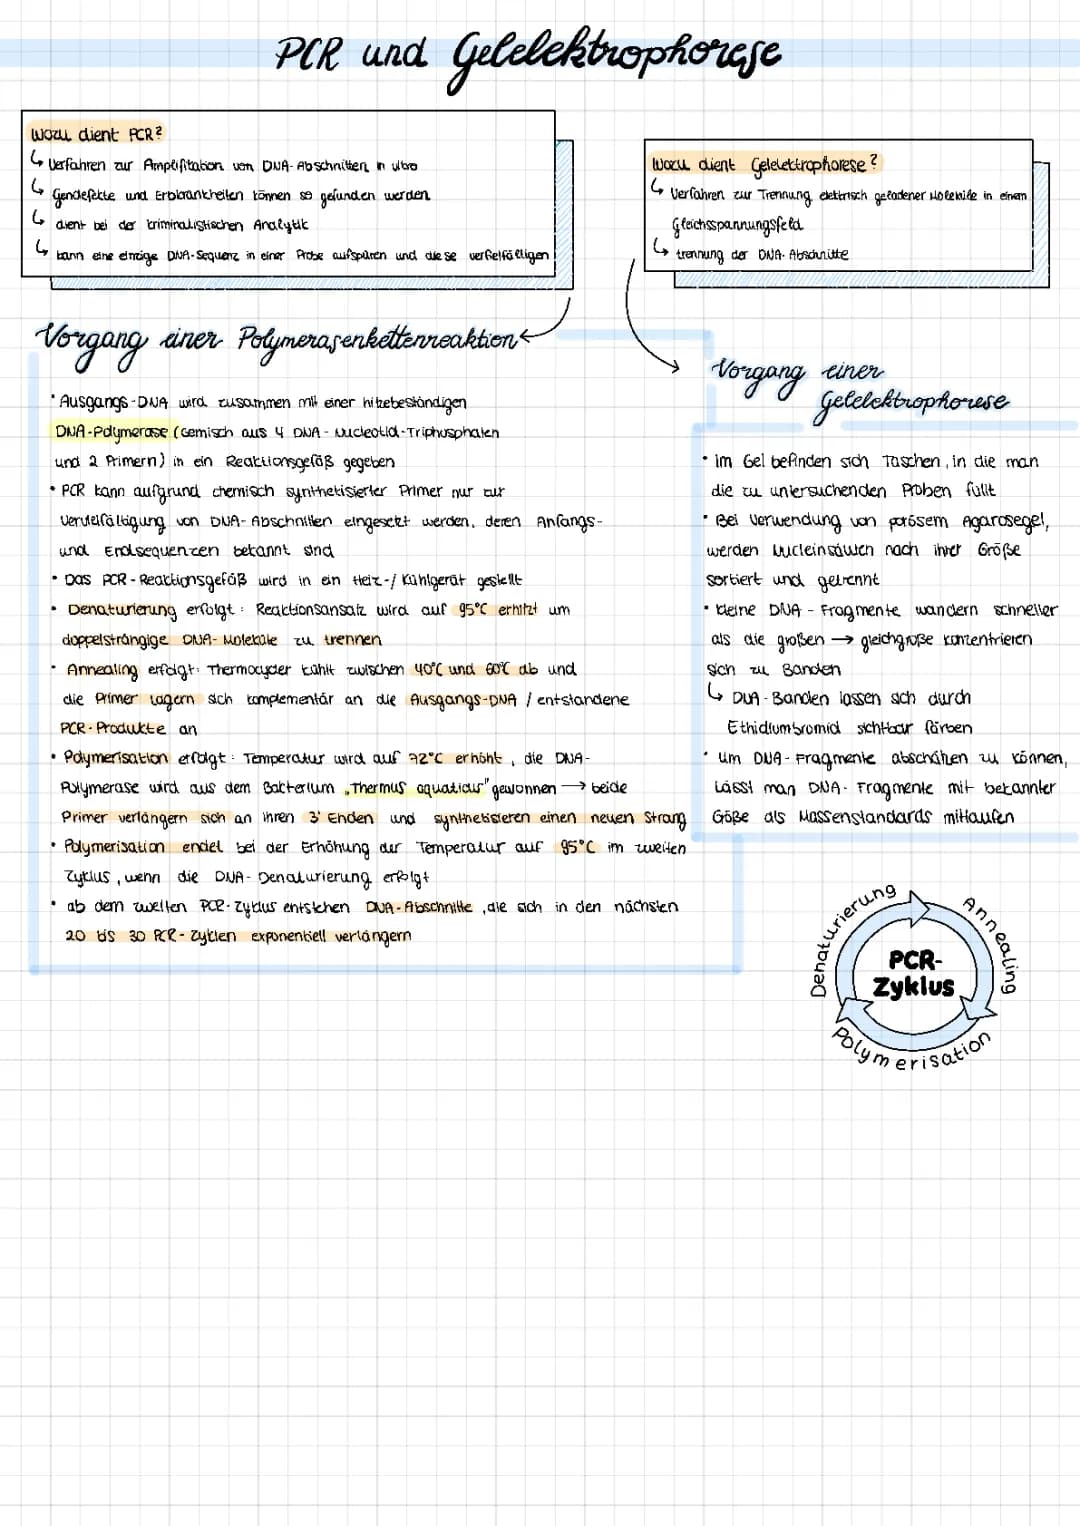 PCR und Gelelektrophorese
Wozu dient PCR?
↳ Verfahren zur Amplifikation von DNA-Abschnitten in vitro
↳ Gendefekte und Erbkrankheiten können so gefunden werden
↳ dient bei der kriminalistischen Analytik
↳ kann eine einzige DNA-Sequenz in einer Probe aufspüren und diese verfielfälligen
Wozu dient Gelelektrophorese?
↳ Verfahren zur Trennung elektrisch geladener Moleküle in einem
Gleichsspannungsfeld
↳ trennung der DNA-Abschnitte
Vorgang einer Polymerasenkettenreaktion
• Ausgangs-DNA wird zusammen mit einer hitzebeständigen
DNA-Polymerase (Gemisch aus 4 DNA-Nucleotid-Triphosphaten
und 2 Primern) in ein Reaktionsgefäß gegeben
• PCR kann aufgrund chemisch synthetisierter Primer nur zur
Vervielfältigung von DNA-Abschnitten eingesetzt werden, deren Anfangs-
und Endsequenzen bekannt sind
• Das PCR-Reaktionsgefäß wird in ein Heiz-/Kühlgerät gestellt
• Denaturierung erfolgt: Reaktionsansatz wird auf 95°C erhitzt um
doppelsträngige DNA-Moleküle zu trennen
• Annealing erfolgt: Thermocycler kühlt zwischen 40°C und 60°C ab und
die Primer lagern sich komplementär an die Ausgangs-DNA / entstandene
PCR-Produkte an
• Polymerisation erfolgt: Temperatur wird auf 72°C erhöht, die DNA-
Polymerase wird aus dem Bakterium „Thermus aquaticus" gewonnen → beide
Primer verlängern sich an ihren 3' Enden und synthetisieren einen neuen Strang
• Polymerisation endet bei der Erhöhung der Temperatur auf 95°C im zweiten
Zyklus, wenn die DNA-Denaturierung erfolgt
• ab dem zweiten PCR-Zyklus entstehen DNA-Abschnitte, die sich in den nächsten
20 bis 30 PCR-Zyklen exponentiell verlängern
Vorgang einer
Gelelektrophorese
• im Gel befinden sich Taschen, in die man
die zu untersuchenden Proben füllt
• Bei Verwendung von porösem Agarosegel,
werden Nucleinsäuren nach ihrer Größe
sortiert und getrennt
• kleine DNA-Fragmente wandern schneller
als die großen → gleichgroße konzentrieren
sich zu Banden
↳ DNA-Banden lassen sich durch
Ethidiumbromid sichtbar färben
• um DNA-Fragmente abschätzen zu können,
lässt man DNA-Fragmente mit bekannter
Göße als Massenstandards mitlaufen
Denaturierung
Annealing
PCR-
Zyklus
Polymerisation